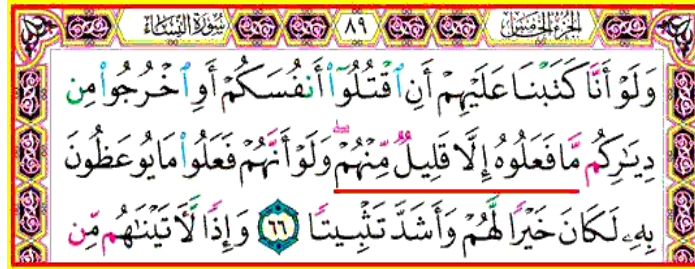 سُورَةُ النِّسَاءِ ٨٩ الجُزءُ الخَامِسُ
وَلَوْ أَنَّا كَتَبْنَا عَلَيْهِمْ أَنِ ٱقْتُلُوٓا۟ أَنفُسَكُمْ أَوِ ٱخْرُجُوا۟ مِن
دِيَـٰرِكُم مَّا فَعَلُوهُ إِلَّا قَلِيلٌ مِّنْهُمْ ۖ وَلَوْ أَنَّهُمْ فَعَلُوا۟ مَا يُوعَظُونَ
بِهِۦ لَكَانَ خَيْرًا لَّهُمْ وَأَشَدَّ تَثْبِيتًا ٦٦ وَإِذًا لَّـَٔاتَيْنَـٰهُم مِّن